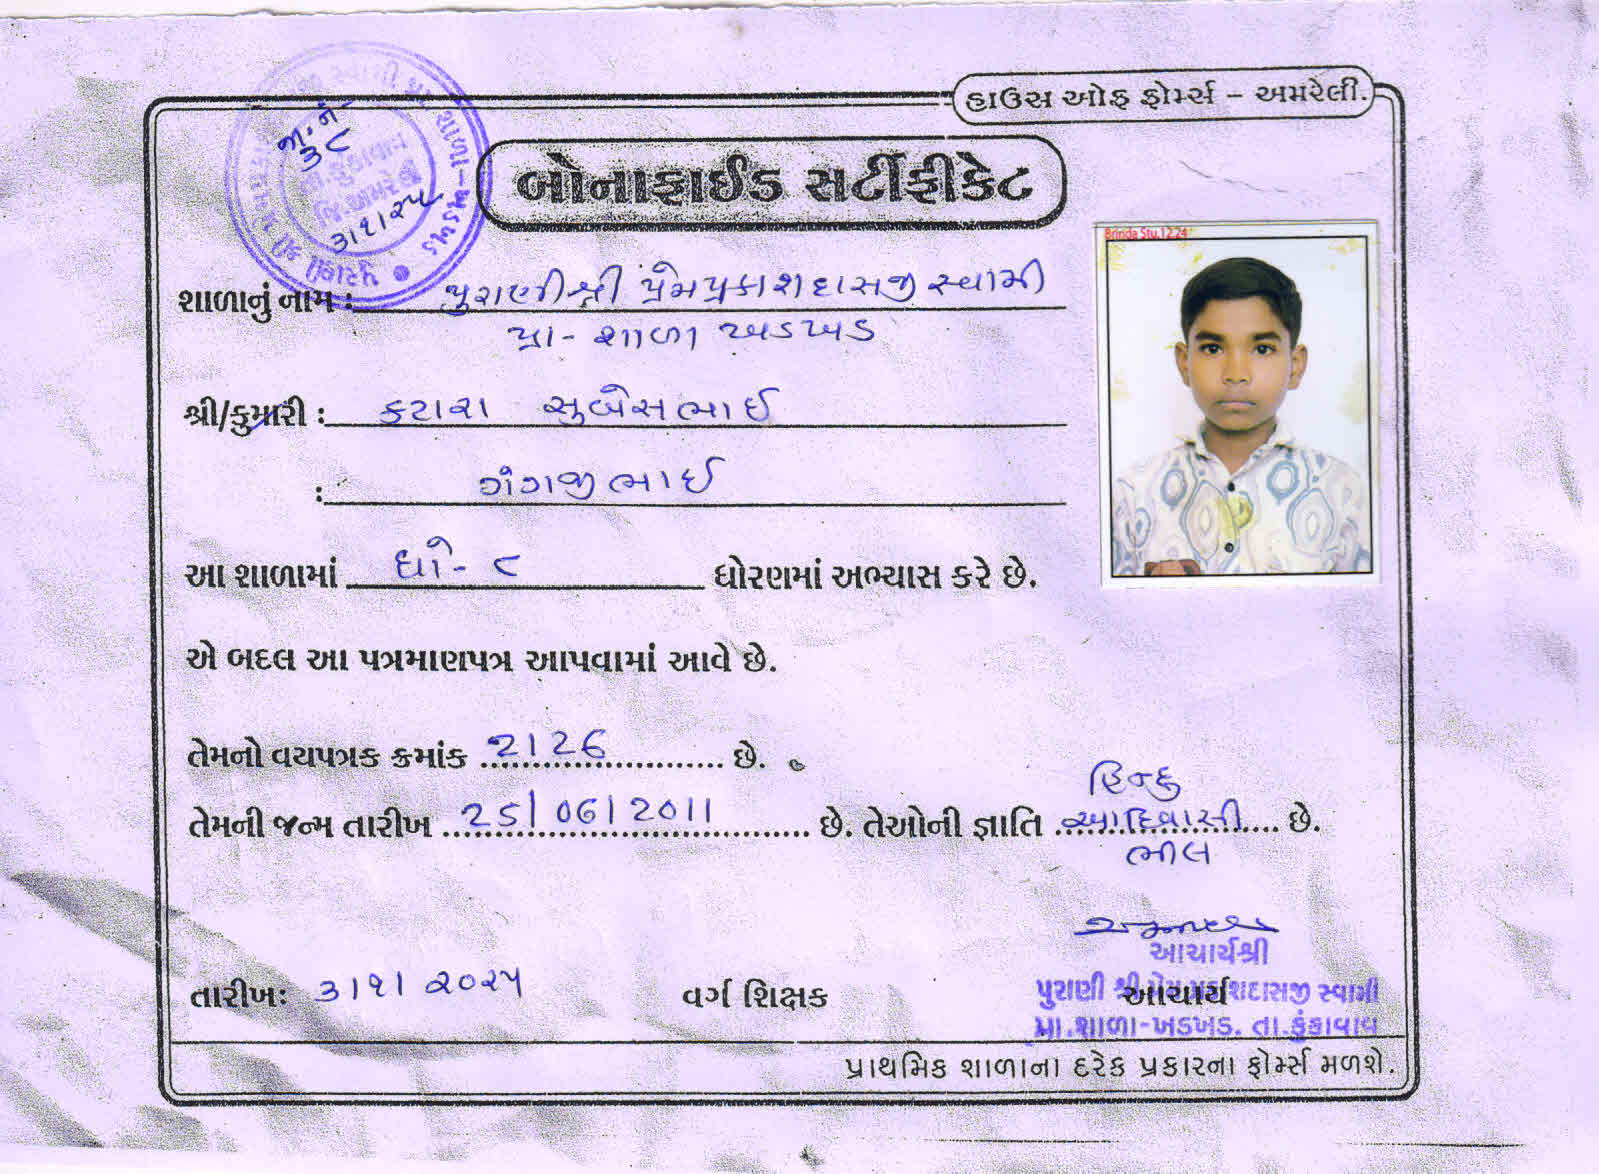 હાઉસ ઓફ ફોર્મ્સ – અમરેલી.
જા. નં. ૩૮
૩|૧|૨૫
બોનાફાઈડ સર્ટીફીકેટ
Brinda Stu.12.24
શાળાનું નામ : પુરાણીશ્રી પ્રેમપ્રકાશદાસજી સ્વામી
પ્રા- શાળા ખડખડ
શ્રી/કુમારી : કટારા સુબેસભાઈ
: ગંગજીભાઈ
આ શાળામાં ધો- ૮ ધોરણમાં અભ્યાસ કરે છે.
એ બદલ આ પત્રમાણપત્ર આપવામાં આવે છે.
તેમનો વયપત્રક ક્રમાંક 2126 છે.
હિન્દુ
તેમની જન્મ તારીખ 25/06/2011 છે. તેઓની જ્ઞાતિ આદિવાસી છે.
ભીલ
આચાર્યશ્રી
તારીખઃ ૩|૧| ૨૦૨૫ વર્ગ શિક્ષક આચાર્ય
પુરાણી શ્રી પ્રેમપ્રકાશદાસજી સ્વામી
પ્રા.શાળા-ખડખડ. તા.કુંકાવાવ
પ્રાથમિક શાળાના દરેક પ્રકારના ફોર્મ્સ મળશે.